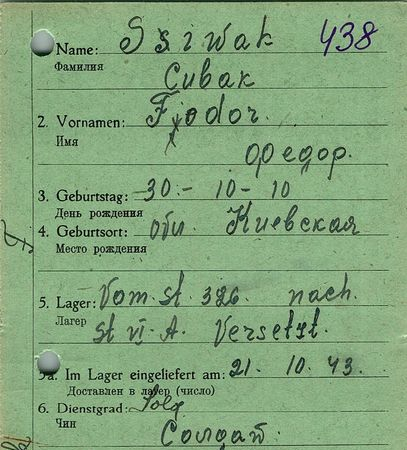 Name: Ssiwak 438
Фамилия Сивак
2. Vornamen: Fjodor.
Имя
Федор.
3. Geburtstag: 30.- 10 - 10
День рождения
4. Geburtsort: обл. Киевская
Место рождения
5. Lager: Vom St. 326 nach.
Лагерь St VI. A. Versetzt.
5a. Im Lager eingeliefert am: 21. 10. 43.
Доставлен в лагер (число)
6. Dienstgrad: Sold
Чин
Солдат